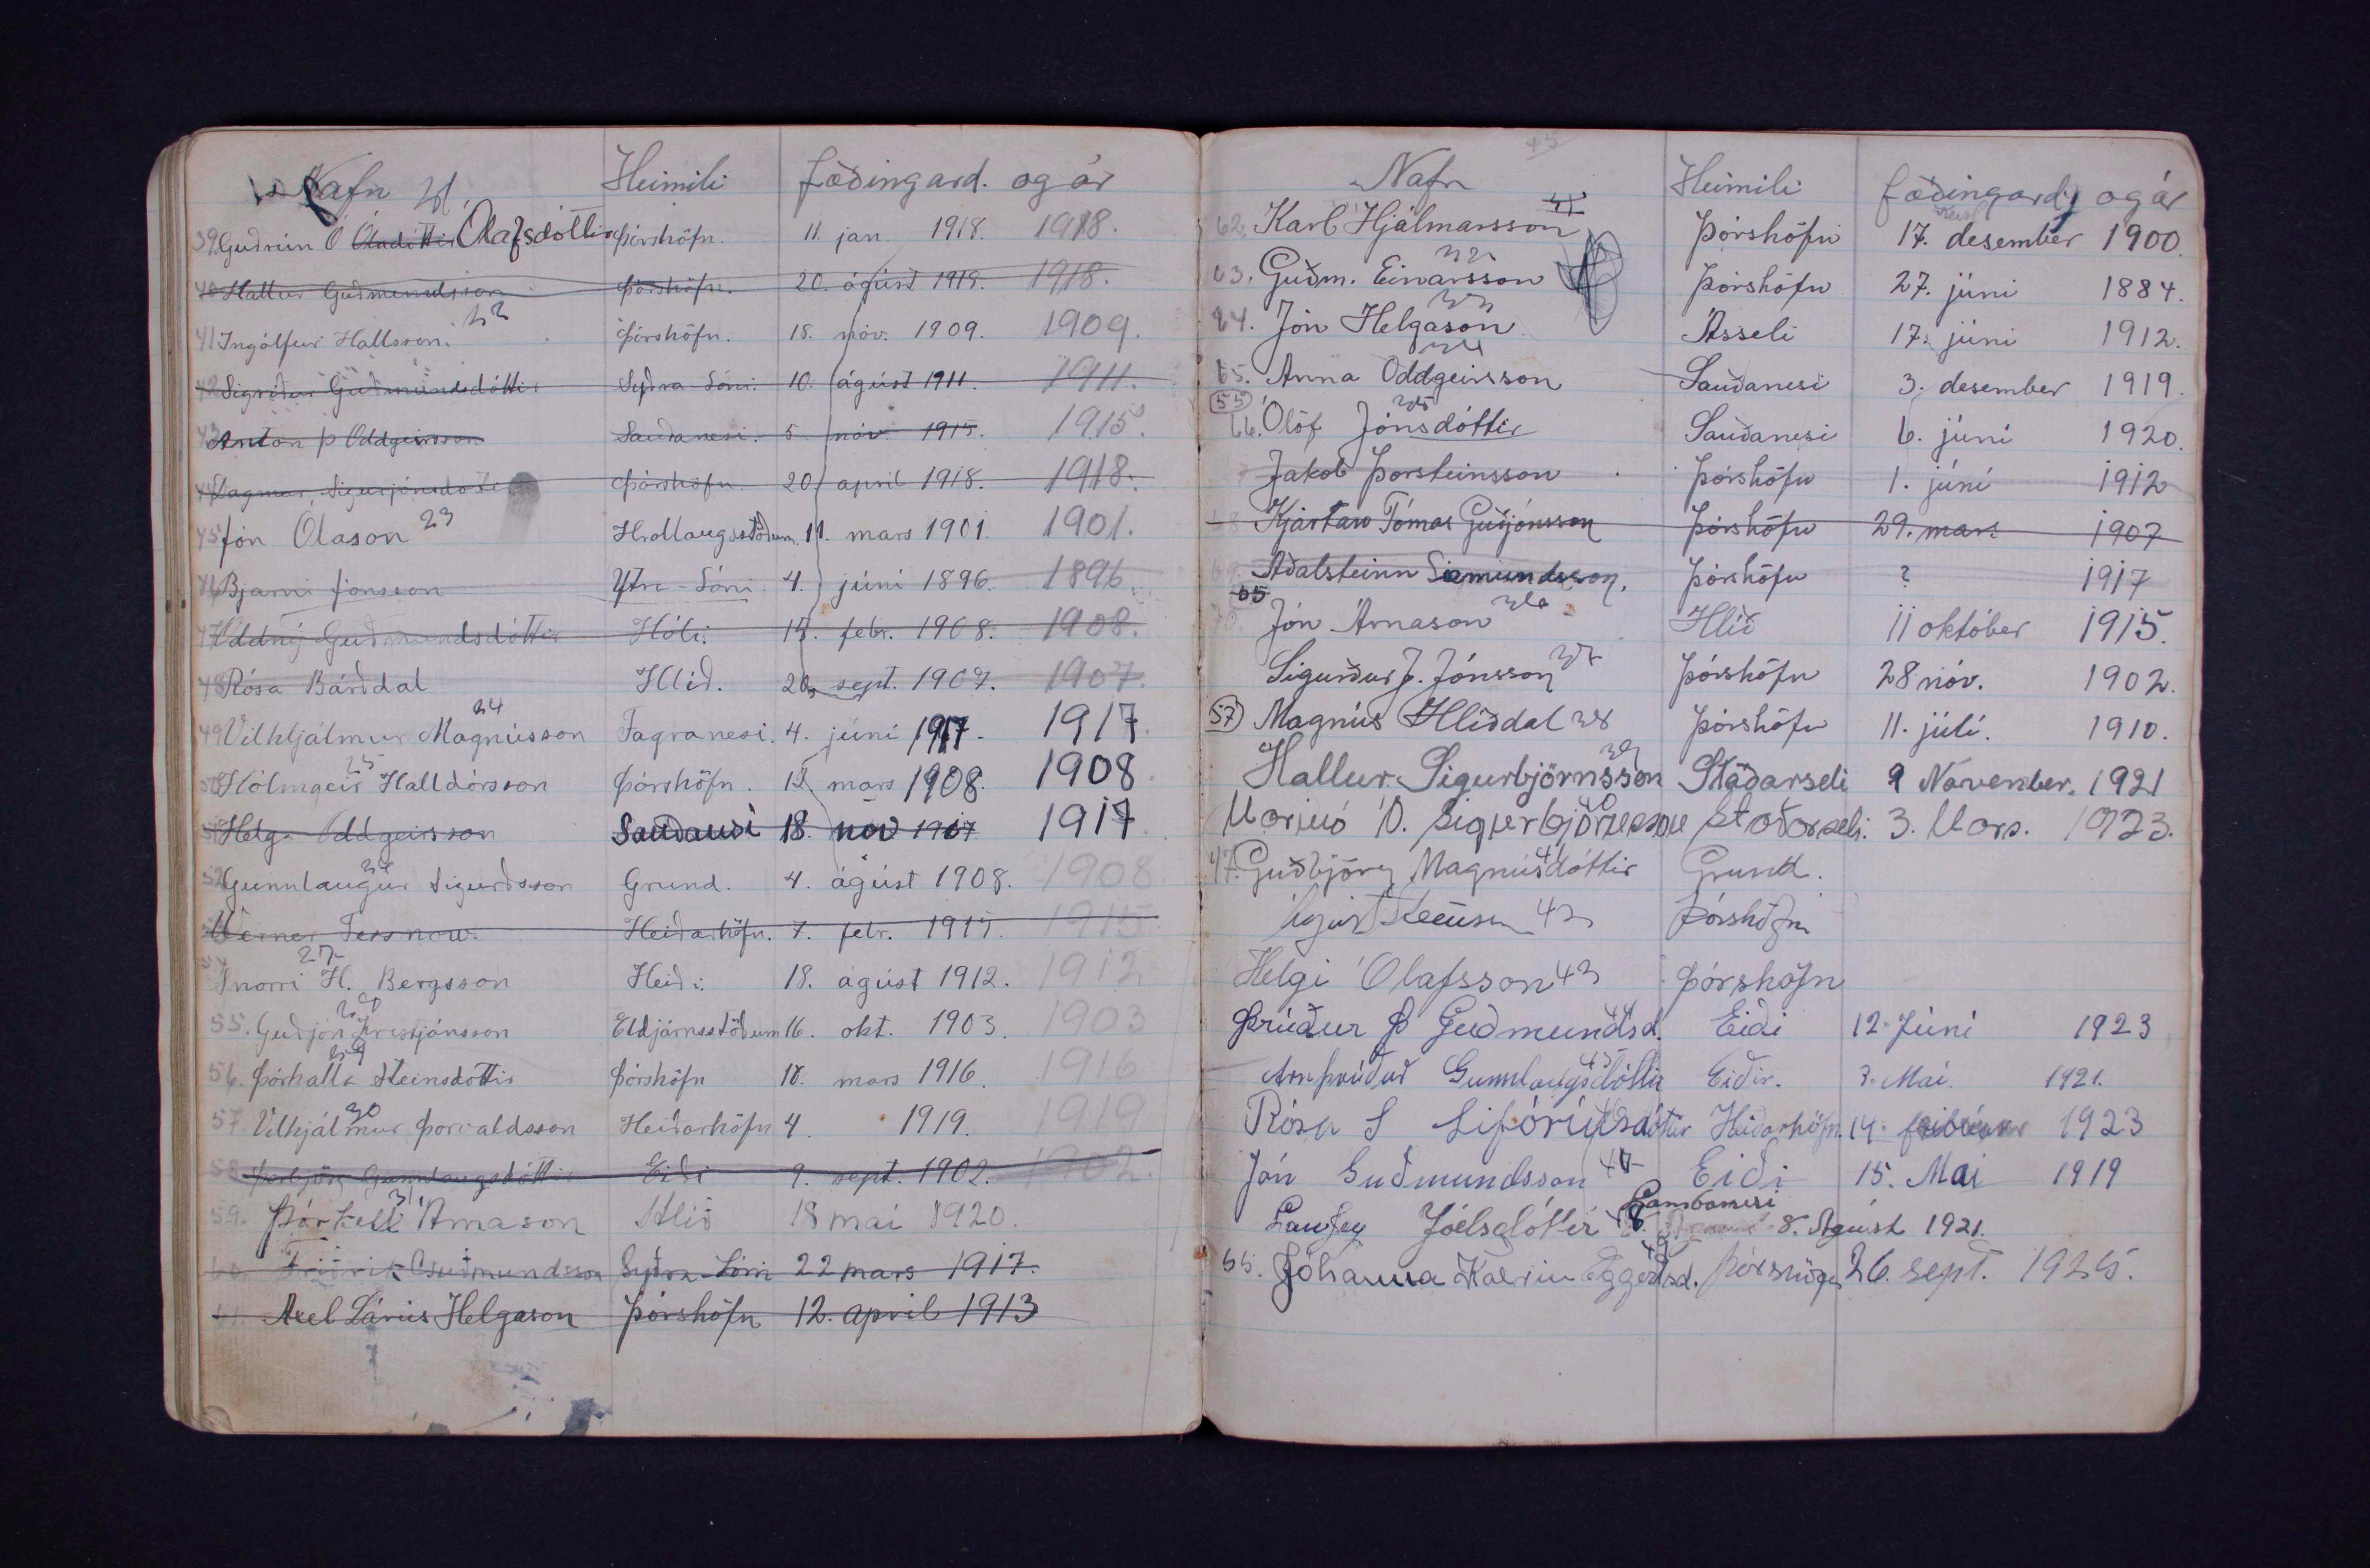 Nafn Heimili fæðingard. og ár
39. Guðrún Ó Óladóttir Ólafsdóttir Þórshöfn. 11. jan. 1918. 1918.
40 Hallur Guðmundsson Þórshöfn. 20. ágúst 1918. 1918.
41 Ingólfur Hallsson. 22 Þórshöfn. 18. nóv. 1909. 1909.
42 Sigríður Guðmundsdóttir Syðra-Lóni. 10. ágúst 1911. 1911.
43 Anton Þ Oddgeirsson Sauðanesi. 5 nóv. 1915. 1915.
44 Dagmar Sigurjónsdóttir Þórshöfn. 20 apríl 1918. 1918.
45 Jón Ólason 23 Hrollaugsstöðum. 11. mars 1901. 1901.
46 Bjarni Jónsson Ytra-Lóni. 4. júní 1896. 1896.
47 Oddný Guðmundsdóttir Hóli. 15. febr. 1908. 1908.
48 Rósa Bárðdal Hlíð. 20. sept. 1907. 1907.
49 Vilhjálmur Magnússon 24 Fagranesi. 4. júní 1917. 1917
50 Hólmgeir Halldórsson 25 Þórshöfn. 15 mars 1908. 1908
51 Helga Oddgeirsson Sauðanesi 18. nóv 1917 1917
52 Gunnlaugur Sigurðsson 26 Grund. 4. ágúst 1908. 1908.
Werner Tersnow. Heiðarhöfn. 7. febr. 1915. 1915
54 Snorri H. Bergsson 27 Heiði. 18. ágúst 1912. 1912
55. Guðjón Kristjánsson 28 Eldjárnsstöðum 16. okt. 1903. 1903
56. Þórhalla Steinsdóttir 29 Þórshöfn 18. mars 1916. 1916
57. Vilhjálmur Þorvaldsson 30 Heiðarhöfn 4. 1919. 1919
58. Þorbjörg Gunnlaugsdóttir Eiði 9. sept. 1902. 1902.
59. Þórkell Árnason 31 Hlíð 18 mai 1920.
60. Friðrik Guðmundsson Syðra-Lóni 22 mars 1917.
61. Axel Lárus Helgason Þórshöfn 12. apríl 1913
45
Nafn Heimili fæðingard. og ár
62. Karl Hjálmarsson Þórshöfn 17. desember 1900.
63. Guðm. Einarsson 32 Þórshöfn 27. júní 1884.
64. Jón Helgason 33 Ásseli 17. júní 1912.
65. Anna Oddgeirsson 34 Sauðanesi 3. desember 1919.
55
66. Ólöf Jónsdóttir 35 Sauðanesi 6. júní 1920.
Jakob Þorsteinsson Þórshöfn 1. júní 1912
68 Kjartan Tómas Guðjónsson Þórshöfn 29. mars 1907
69. Aðalsteinn Sigmundsson. Þórshöfn ? 1917
65
70 Jón Árnason 36 Hlíð 11 október 1915.
Sigurður J. Jónsson 37 Þórshöfn 28 nóv. 1902.
57 Magnús Hlíðdal 38 Þórshöfn 11. júlí. 1910.
Hallur Sigurbjörnsson 39 Staðarseli 9 November. 1921
Marinó Ó. Sigurbjörnsson 40 Staðarseli. 3. Mars. 1923.
47. Guðbjörg Magnúsdóttir 41 Grund.
42 Þórshöfn
Helgi Ólafsson 43 Þórshöfn
Þrúður Þ Guðmundsd. 44 Eiði 12. Júní 1923
Arnþrúður Gunnlaugsdóttir 45 Eiðir. 7. Mai. 1921.
Rósa S Lifóríusdóttir 46 Heiðarhöfn. 14. febrúar 1923
Jón Guðmundsson 47 Eiði 15. Mai 1919
Laufey Jóelsdóttir 48. Lambanesi 8. Ágúst 1921.
66. Jóhanna Katrín Eggertsd. 49 Þórshöfn 26. sept. 1925.